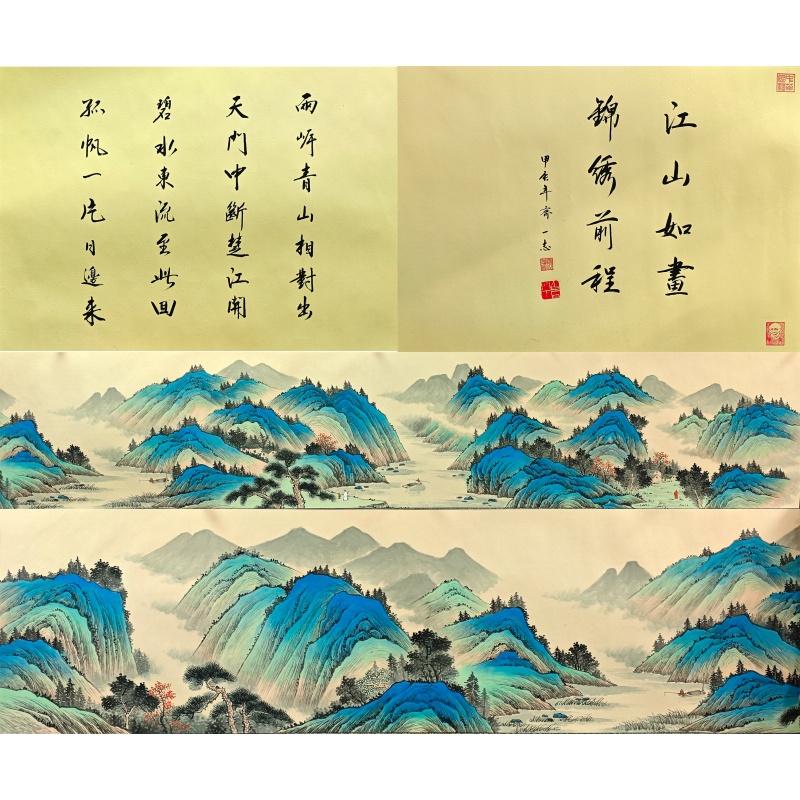 江山如畫
錦绣前程
甲辰年齊一志
兩岸青山相對出
天門中斷楚江開
碧水東流至此回
孤帆一片日邊来